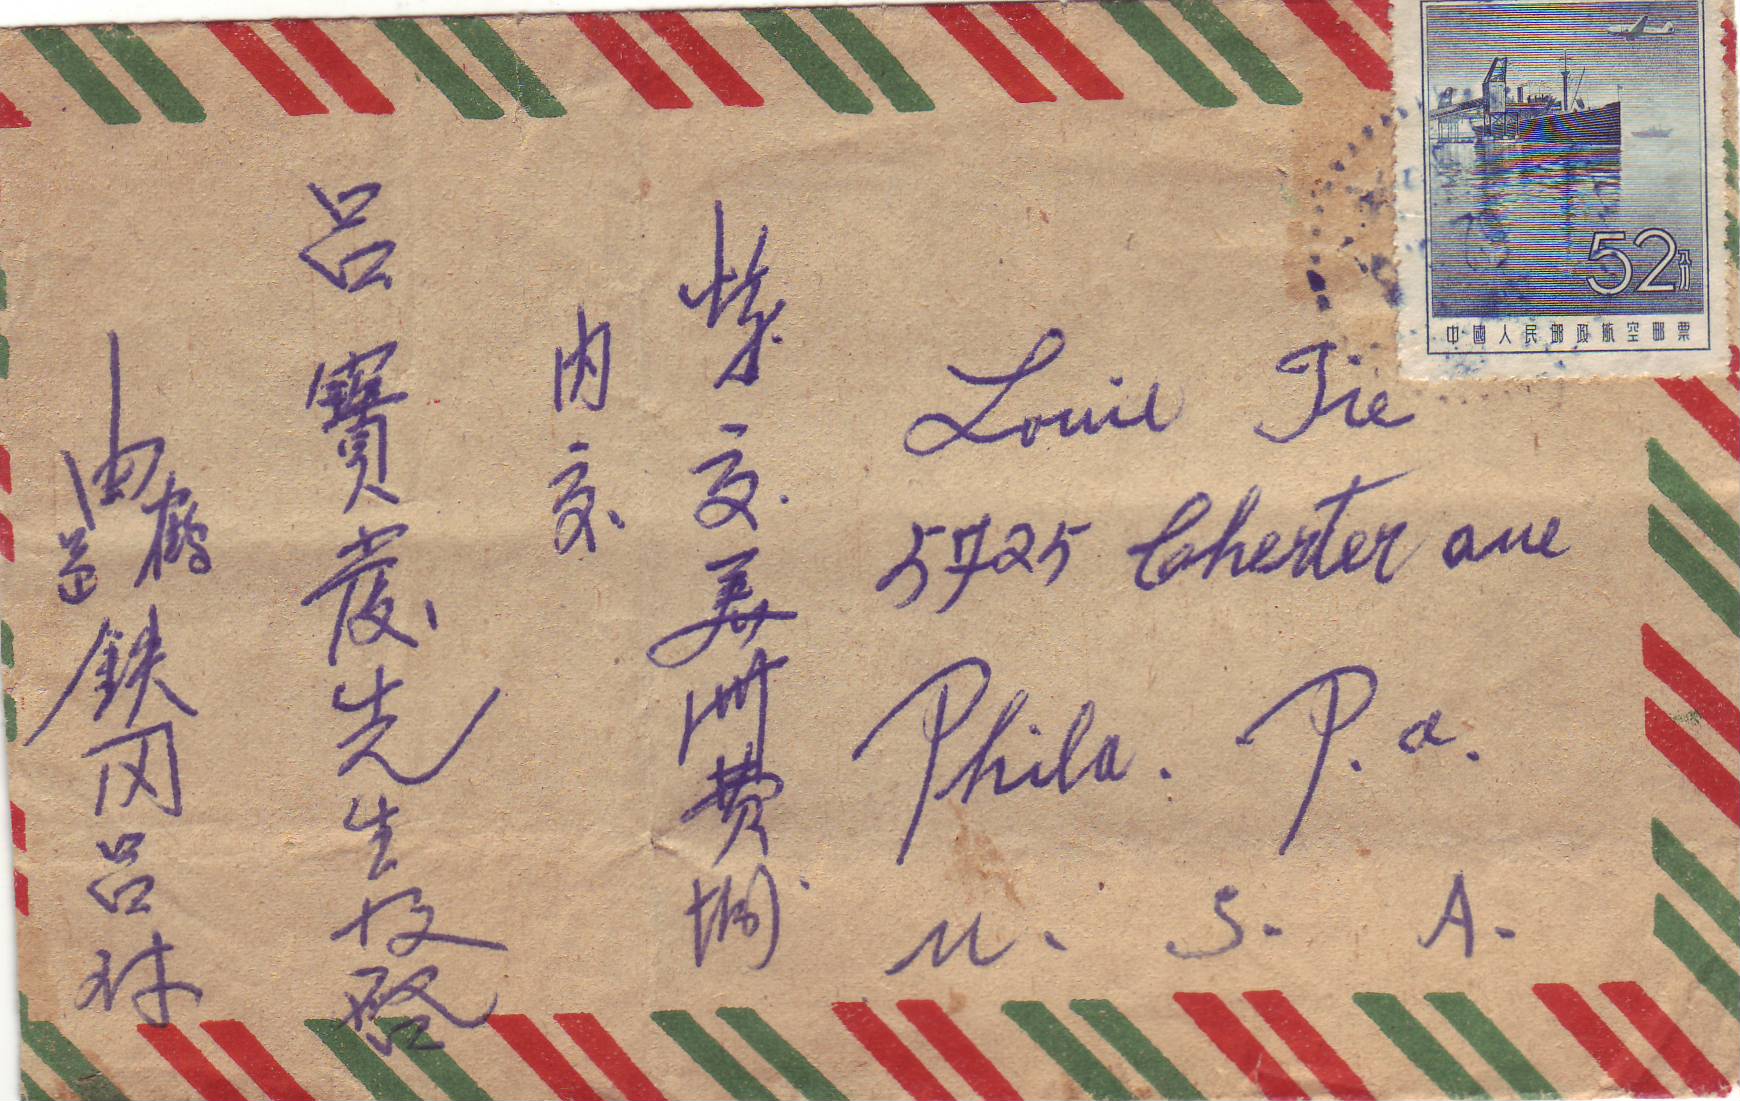 52分
中國人民郵政航空郵票
Louie Jie
5725 Chester ave
Phila. P.a.
U. S. A.
交美洲費城
內交
呂寶彦先生收啓
由鶴邑鉄冈呂村